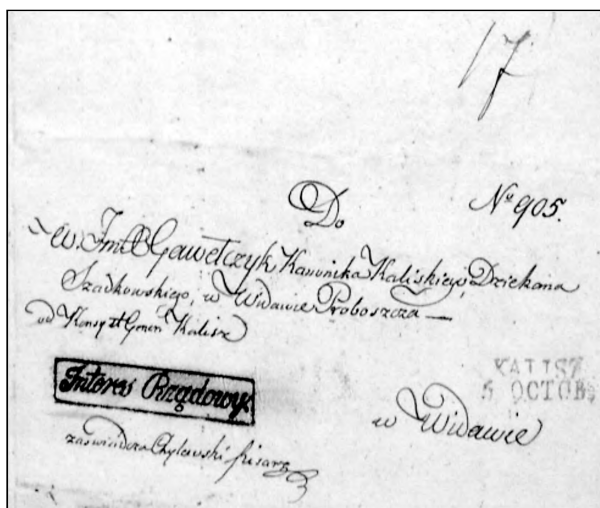 17
Do
No 905.
W. Jmć X Gawełczyk Kanonika Kaliskiego, Dziekana
Szadkowskiego, w Widawie Proboszcza —
od Konsyst Kalisz
Interes Rządowy.
KALISZ
5 OCTOB
w Widawie
zaświadcza Chylewski pisarz